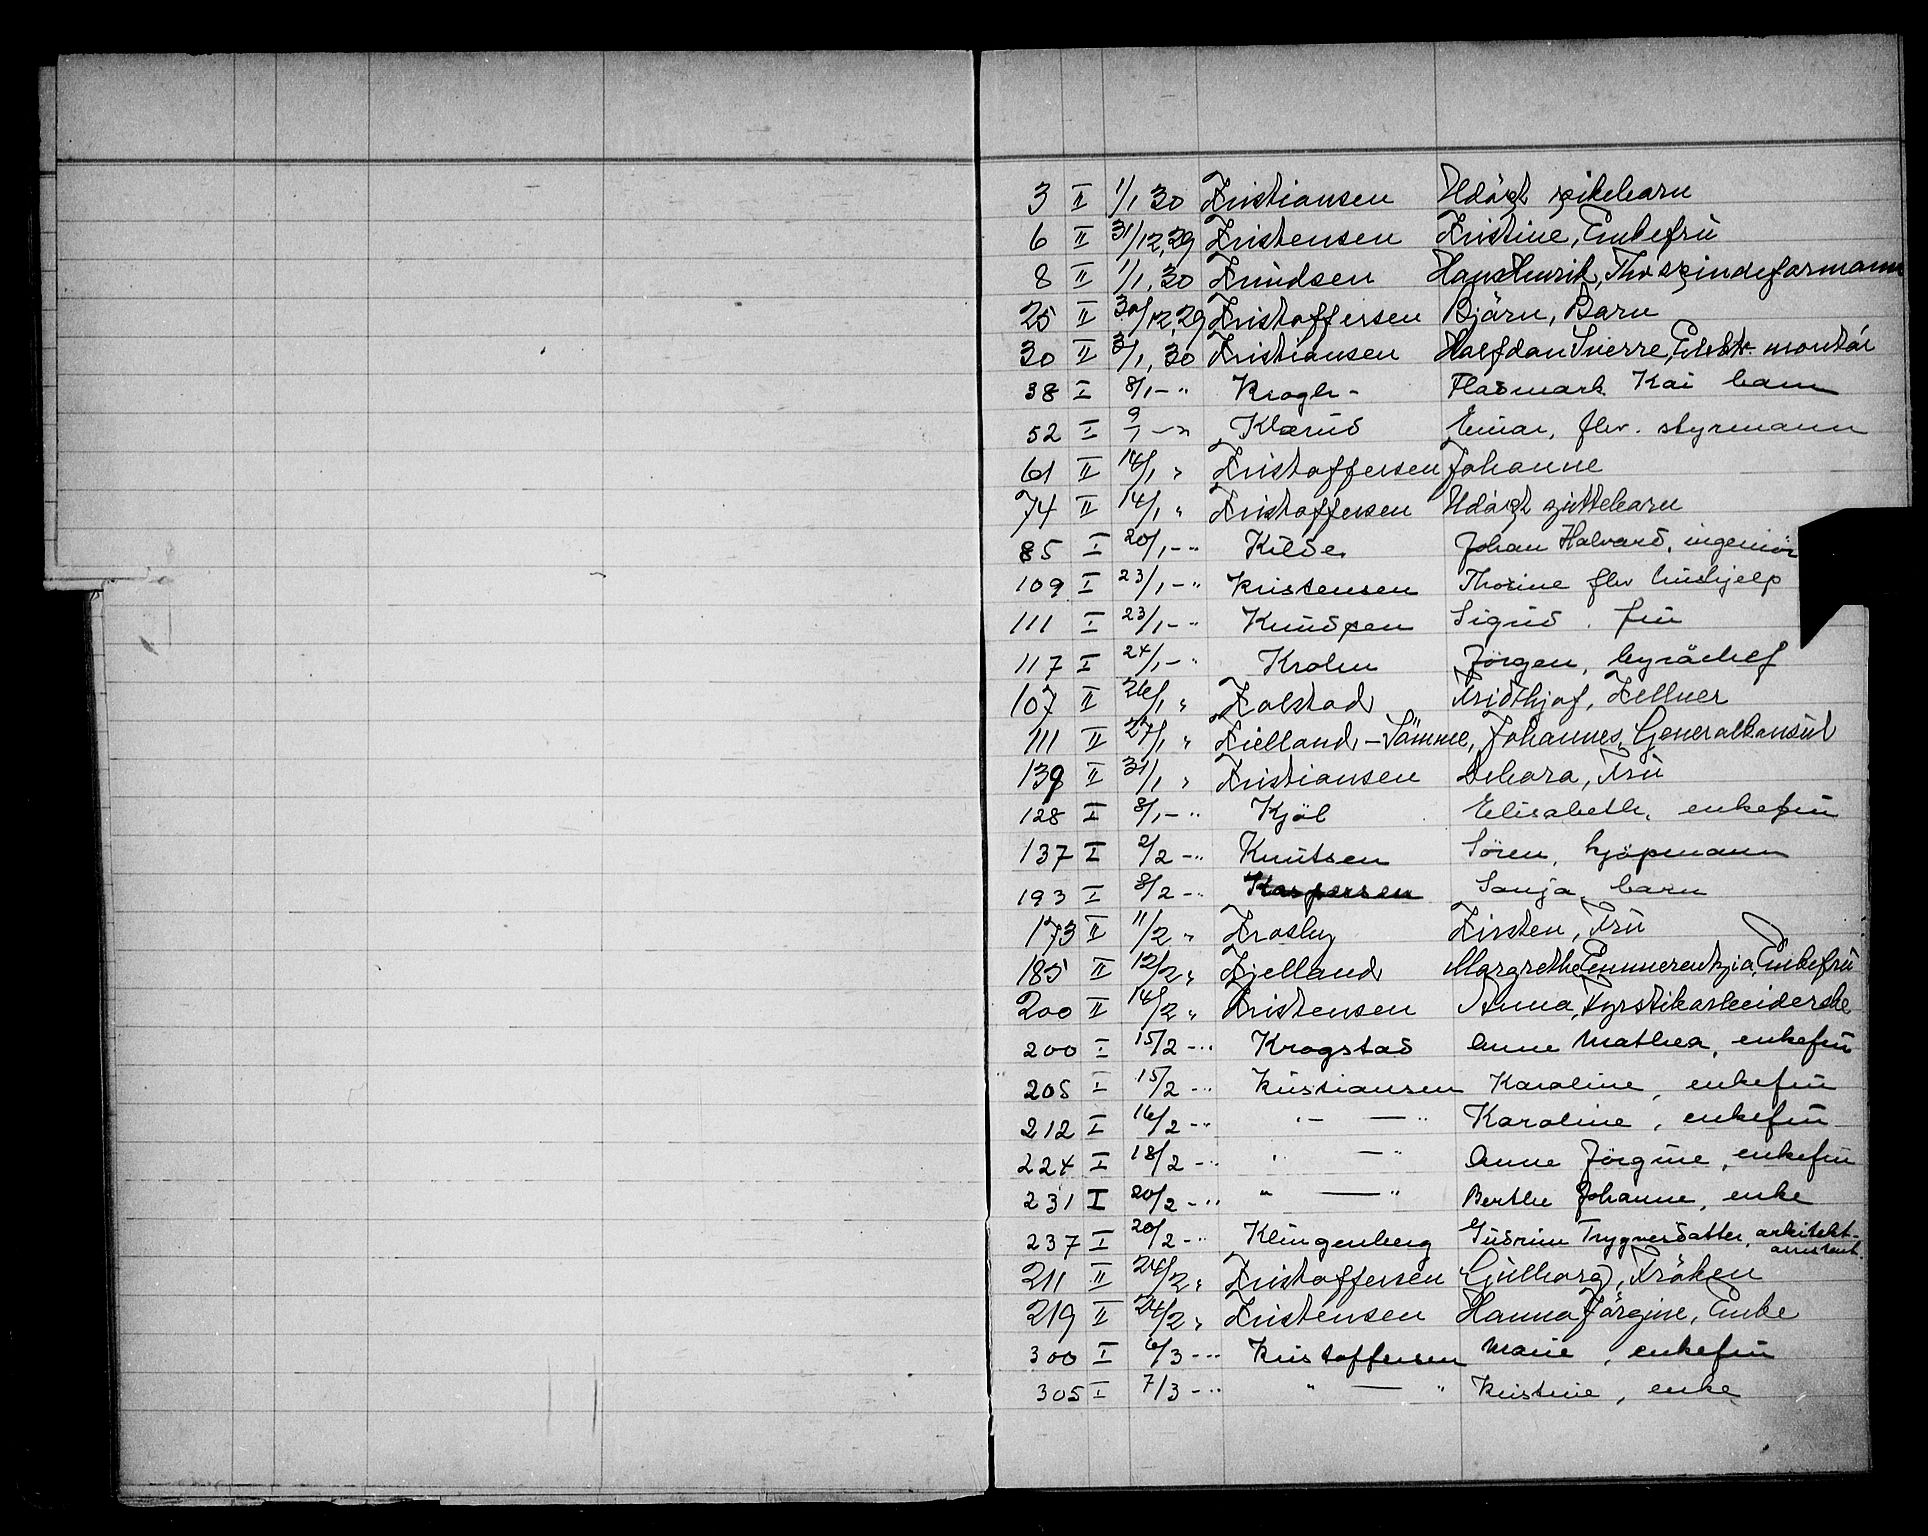 3 II 1/1 30 Kristiansen Udöpt pikebarn
6 II 31/12,29 Kristensen Kristine, Enkefru
8 II 1/1, 30 Knudsen Hans Henrik, Fhv spindeformann
25 II 30/12,29 Kristoffersen Björn, Barn
30 II 3/1, 30 Kristiansen Halfdan Sverre, Elektr. montör
38 I 8/1 - " Krogh - Flasmark Kai barn
52 I 9/1 - " Klærud Einar, fhv. styrmann
61 II 14/1 " Kristoffersen Johanne
74 II 14/1 " Kristoffersen Udöpt guttebarn
85 I 20/1 - " Kilde Johan Halvard, ingeniör
109 I 23/1 - " Kristensen Thorine fhv hushjelp
111 I 23/1 - " Knudsen Sigrid, fru
117 I 24/1 - " Krohn Jörgen, byråchef
107 II 26/1 " Kolstad Fridthjof, Kellner
111 II 27/1 " Kielland - Sömme, Johannes, Generalkonsul
139 II 31/1 " Kristiansen Debora, Fru
128 I 8/1 - " Kjöl Elisabeth, enkefru
137 I 2/2 - " Knutsen Sören, kjöpmann
193 I 8/2 - " Kaspersen Sonja, barn
173 II 11/2 " Krosby Kirsten, Fru
185 II 12/2 " Kjelland Margrethe Emmerentzia, Enkefru
200 II 14/2 " Kristensen Anna, Fyrstikarbeiderske
200 I 15/2 - " Krogstad Anne Mathea, enkefru
205 I 15/2 - " Kristiansen Karoline, enkefru
212 I 16/2 - " " — " Karoline, enkefru
224 I 18/2 - " " — " Anne Jörgine, enkefru
231 I 20/2 - " " — " Berthe Johanne, enke
237 I 20/2 - " Klingenberg Gudrun Trygvesdatter, arkitekt-
assistent.
211 II 24/2 " Kristoffersen Gulborg, Fröken
219 II 24/2 " Kristensen Hanna Jörgine, Enke
300 I 6/3 - " Kristoffersen Marie, enkefru
305 I 7/3 - " " — " Kristine, enke